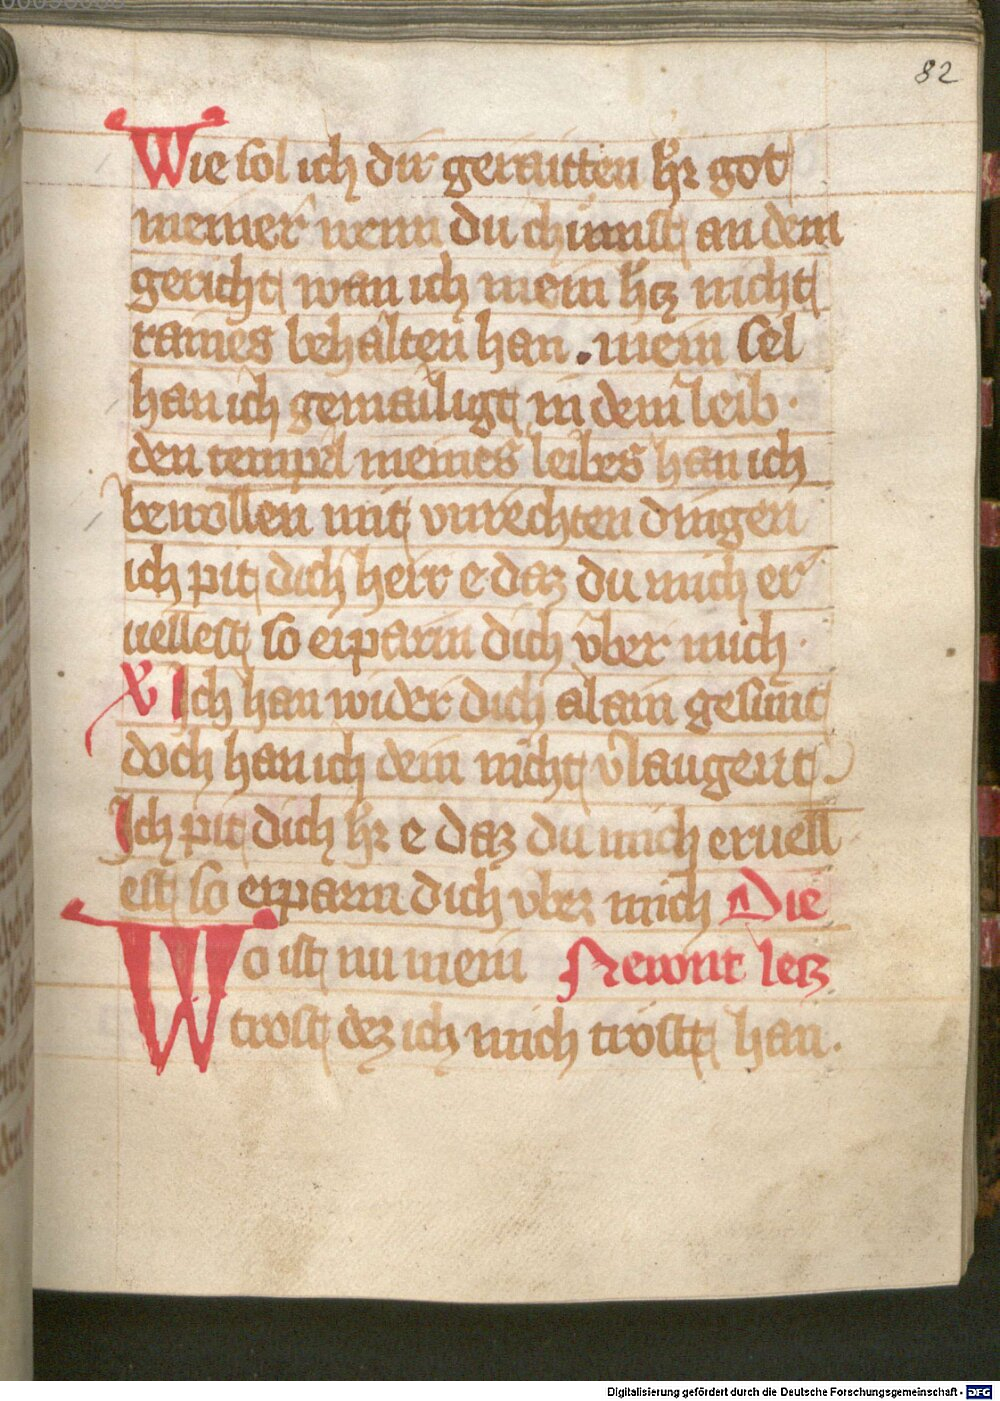 82
Wie sol ich dir geraitten hr got
meiner wenn du chümst an dem
gericht wan ich mein hcz nicht
raines behalten han . mein sel
han ich gemailigt in dem leib ·
den tempel meines leibes han ich
bewollen mit vnrechten dingen
ich pit dich herr e daz du mich er
uellest so erparm dich vber mich ·
V Ich han wider dich alain gesunt
doch han ich dein nicht vlaugent .
Ich pit dich hr e daz du mich eruell
est so erparm dich vber mich Die
Wo ist nu mein Newnt lecz
trost dez ich mich tröstt han .
Digitalisierung gefördert durch die Deutsche Forschungsgemeinschaft - DFG